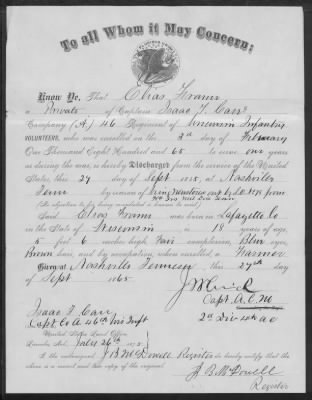 To all Whom it May Concern:
Know Ye, That Elias Framr
a Private of Captain Isaac T. Carr's
Company (A.) 46 Regiment of Wisconsin Infantry
VOLUNTEERS, who was enrolled on the 3d day of February
One Thousand Eight Hundred and 65 to serve one years
or during the war, is hereby Discharged from the service of the United
States, this 27 day of Sept 1865, at Nashville
Tenn by reason of being Mustered out
(No objection to his being re-enlisted is known to exist.)
Said Elias Framr was born in Lafayette Co
in the State of Wisconsin is 18 years of age,
5 feet 6 inches high Fair complexion, Blue eyes,
Brown hair, and by occupation, when enrolled, a Farmer
Given at Nashville Tennessee this 27th day
of Sept 1865
Capt. A.C.M
2d Div
Isaac T Carr
Capt Co A 46th Wis Inft
United States Land Office,
July 26th 187
I, the undersigned J B McDowell Register do hereby certify that the
above is a correct and true copy of the original.
J. B. McDowell
Register